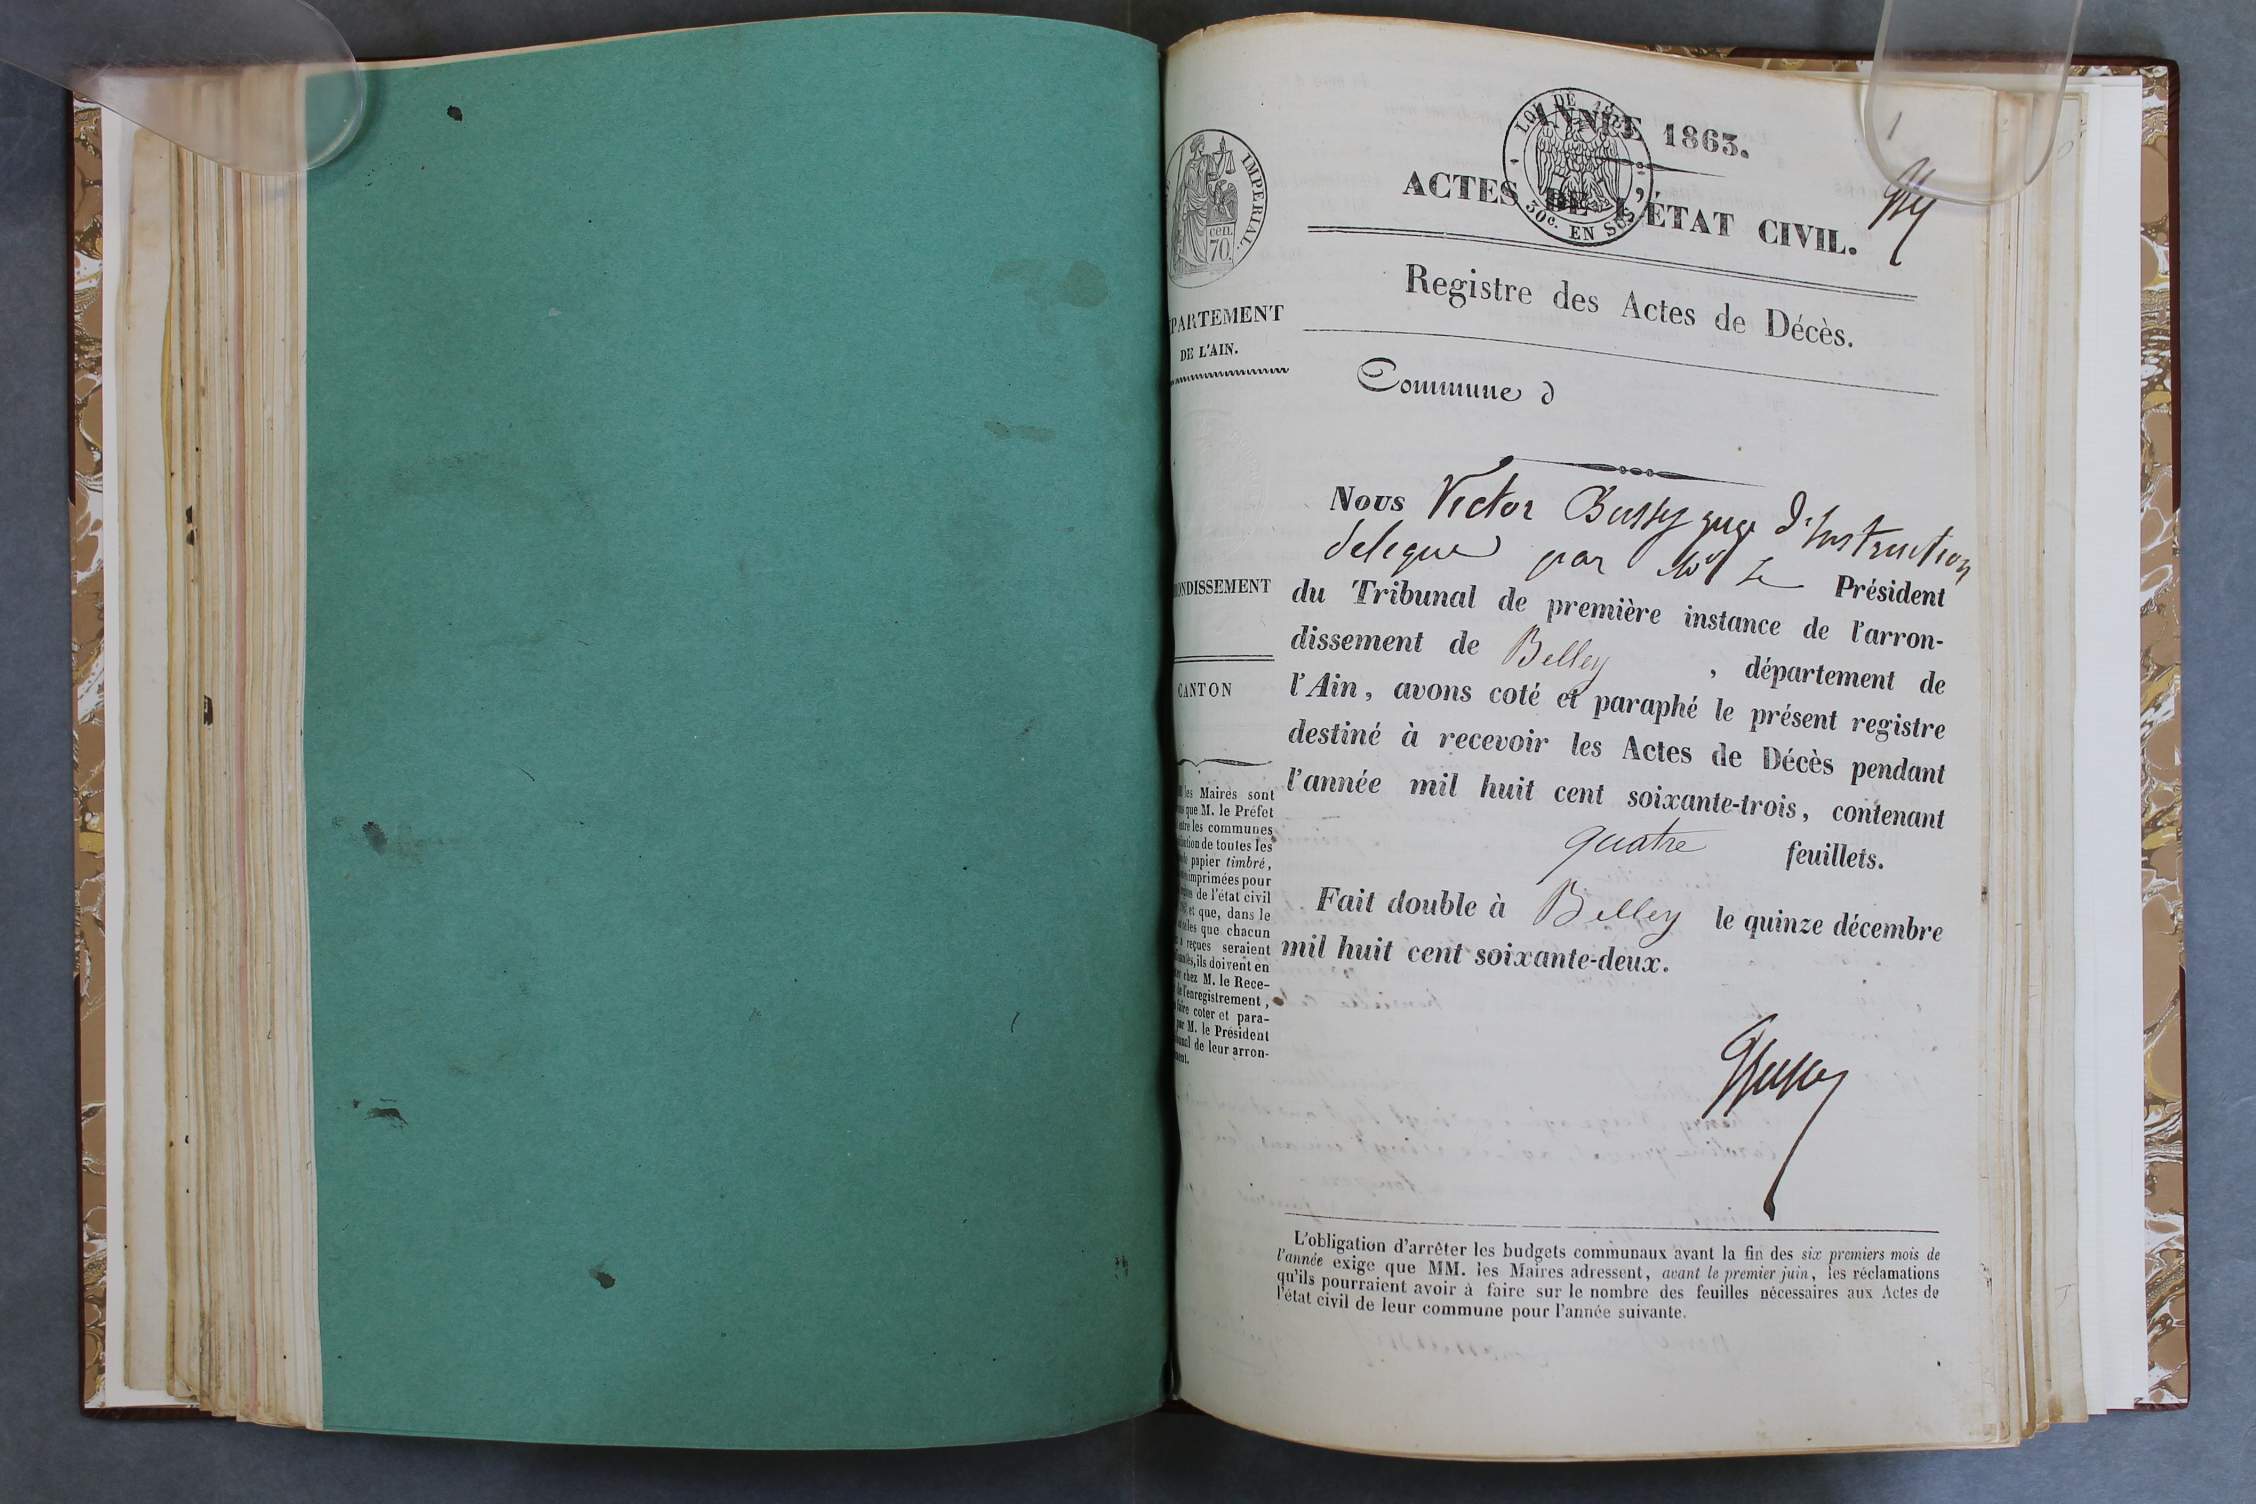 1
ANNÉE 1863.
LOI DE 18
30c. EN SUS
IMPERIAL.
cen.
70.
ACTES DE L'ÉTAT CIVIL.
Registre des Actes de Décès.
Commune d
PARTEMENT
DE L'AIN.
ONDISSEMENT
CANTON
les Maires sont
que M. le Préfet
les communes
de toutes les
papier timbré,
imprimées pour
de l'état civil
et que, dans le
que chacun
reçues seraient
ils doivent en
chez M. le Rece-
de l'enregistrement,
faire coter et para-
par M. le Président
de leur arron-
Nous Victor Bussy juge d'Instruction
delegue par Mr Le Président
du Tribunal de première instance de l'arron-
dissement de Belley , département de
l'Ain, avons coté et paraphé le présent registre
destiné à recevoir les Actes de Décès pendant
l'année mil huit cent soixante-trois, contenant
quatre feuillets.
Fait double à Belley le quinze décembre
mil huit cent soixante-deux.
Bussy
L'obligation d'arrêter les budgets communaux avant la fin des six premiers mois de
l'année exige que MM. les Maires adressent, avant le premier juin, les réclamations
qu'ils pourraient avoir à faire sur le nombre des feuilles nécessaires aux Actes de
l'état civil de leur commune pour l'année suivante.